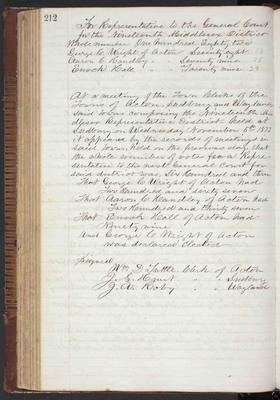 212
For Representative to the General Court
for the Nineteenth Middlesex District
Whole number One hundred Eighty two
George C. Wright of Acton Seventy eight 78
Aaron C. Handley " Seventy nine 75
Enoch Hall " Twenty nine 29
At a meeting of the Town Clerks of the
Towns of Acton, Sudbury and Wayland,
said towns composing the Nineteenth Mid
dlesex Representative District held at
Sudbury on Wednesday November 6th 1872
it appears by the records of meetings in
said Towns held on the previous day that
the whole number of votes for a Repre-
sentative to the next General Court for
said district was Six hundred and three
That George C. Wright of Acton had
Two hundred and sixty seven
That Aaron C. Handley of Acton had
Two hundred and thirty seven
That Enoch Hall of Acton had
Ninety nine
and George C. Wright of Acton
was declared elected
Signed
Wm D. Tuttle Clerk of Acton
J. S. Hunt " " Sudbury
" " Wayland